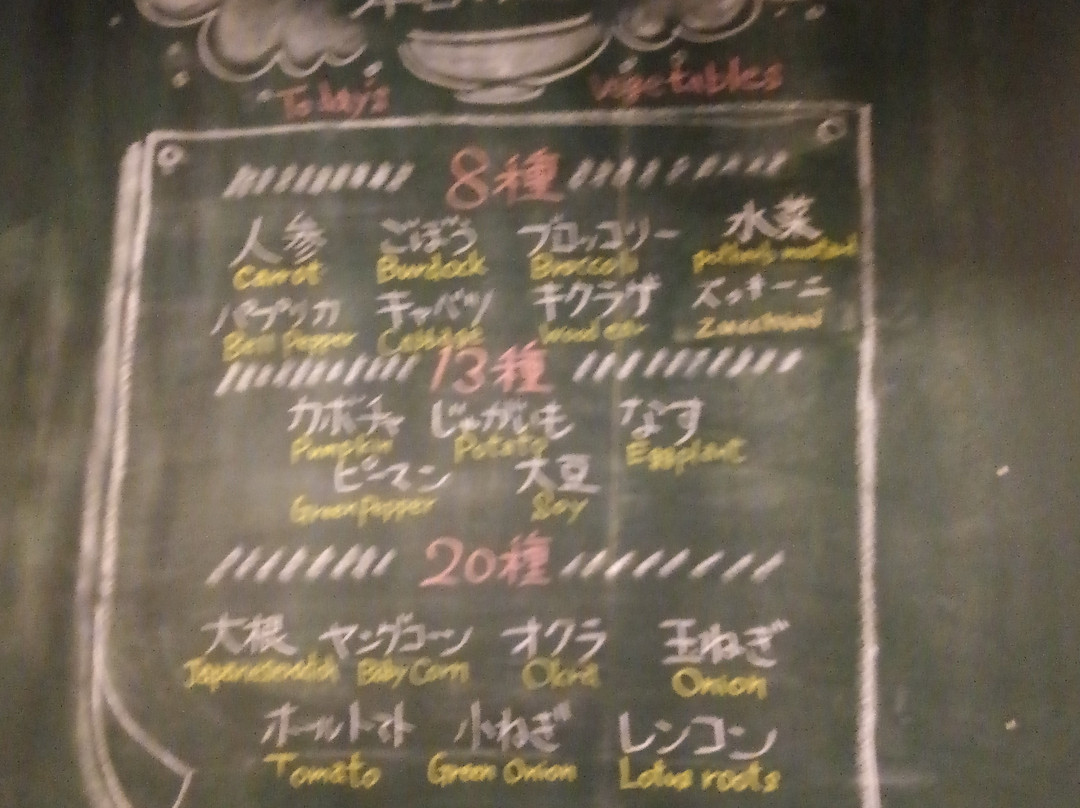 Today's vegetables
8種
人参 ごぼう ブロッコリー 水菜
Carrot Burdock Broccoli
パプリカ キャベツ キクラゲ ズッキーニ
Bell Pepper Cabbage Wood ear
13種
カボチャ じゃがいも なす
Pumpkin Potato Eggplant
ピーマン 大豆
Green Pepper Soy
20種
大根 ヤングコーン オクラ 玉ねぎ
Baby Corn Okra Onion
ホールトマト 小ねぎ レンコン
Tomato Green Onion Lotus roots